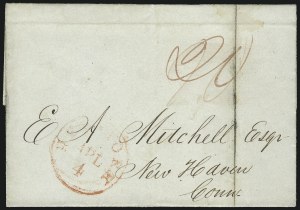 20
E A Mitchell Esqr
New Haven
Conn